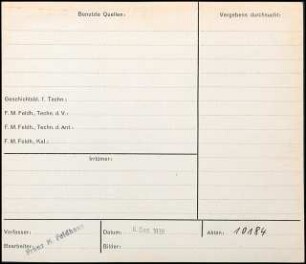 Benutzte Quellen:
Vergebens durchsucht:
Geschichtsbl. f. Techn.:
F. M. Feldh., Techn. d. V.:
F. M. Feldh., Techn. d. Ant.:
F. M. Feldh., Kal.:
Irrtümer:
Verfasser:
Franz M. Feldhaus
Datum:
Akten: 10184
Bearbeiter:
Bilder: